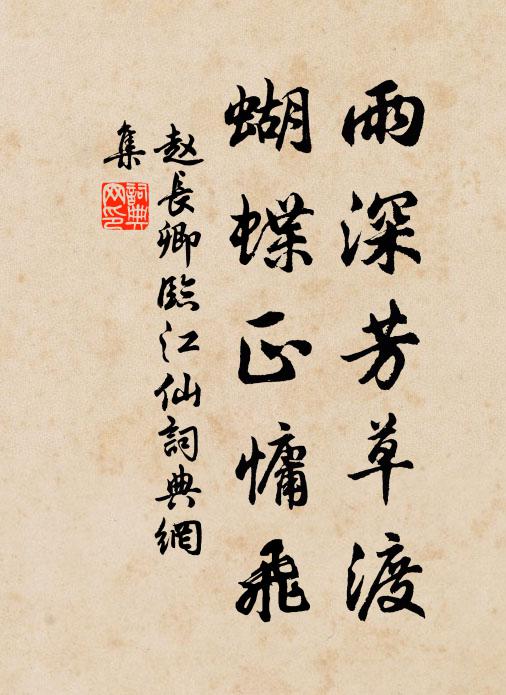 雨深芳草渡
蝴蝶正慵飛
赵長卿臨江仙詞典網
集
詞典网印